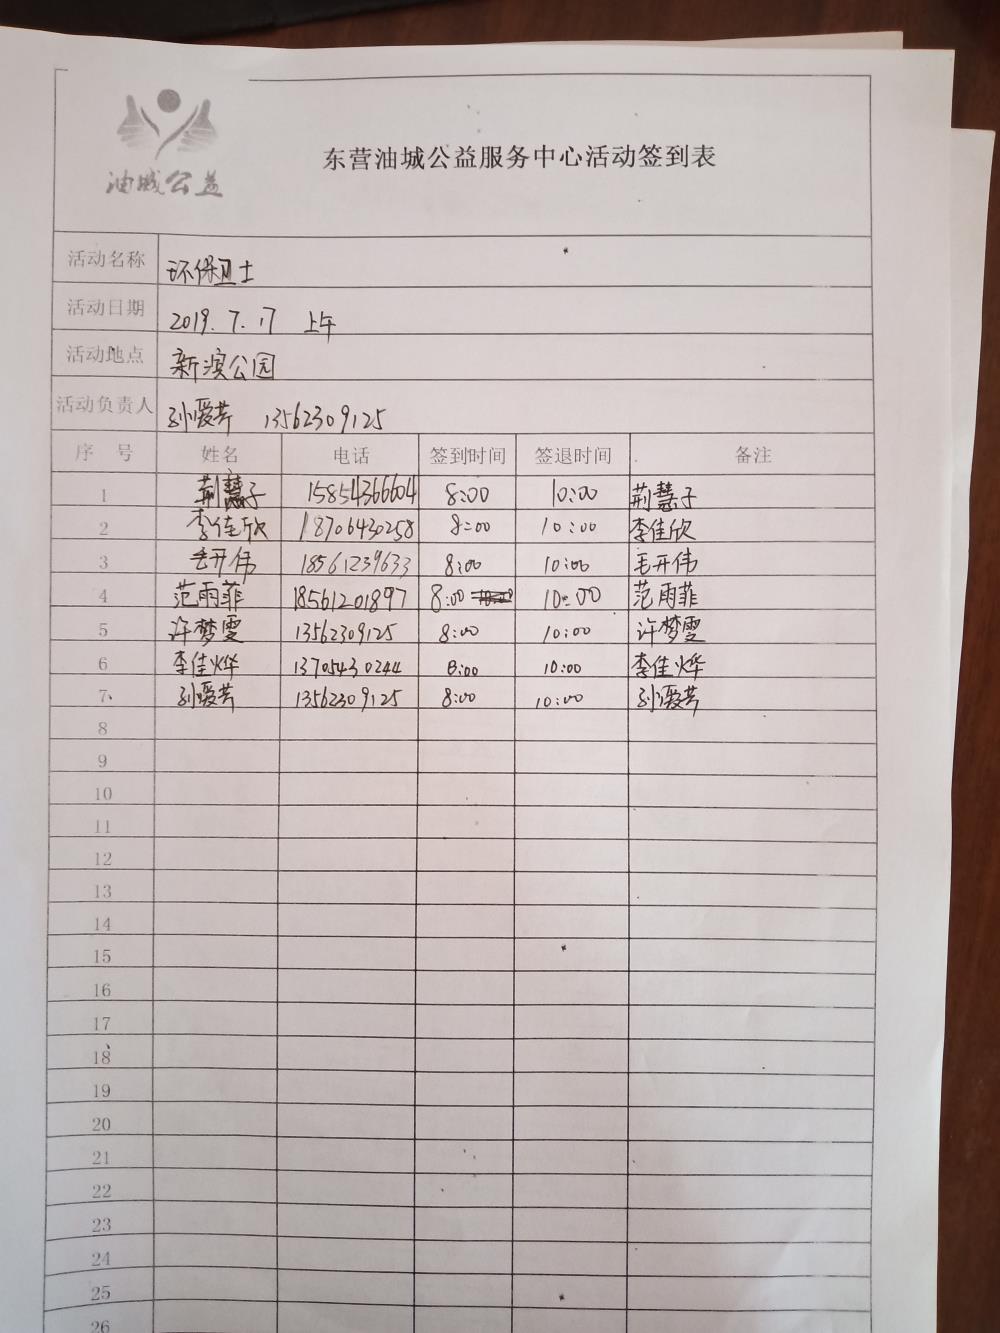 油城公益
东营油城公益服务中心活动签到表
活动名称 环保卫士
活动日期 2019.7.17 上午
活动地点 新滨公园
活动负责人 孙爱芳 13562309125
序号 姓名 电话 签到时间 签退时间 备注
1 荆慧子 15854366604 8:00 10:00 荆慧子
2 李佳欣 18706430258 8:00 10:00 李佳欣
3 毛开伟 18561239633 8:00 10:00 毛开伟
4 范雨菲 18561201897 8:00 10:00 范雨菲
5 许梦雯 13562309125 8:00 10:00 许梦雯
6 李佳烨 13705430244 8:00 10:00 李佳烨
7、 孙爱芳 13562309125 8:00 10:00 孙爱芳
8
9
10
11
12
13
14
15
16
17
18
19
20
21
22
23
24
25
26